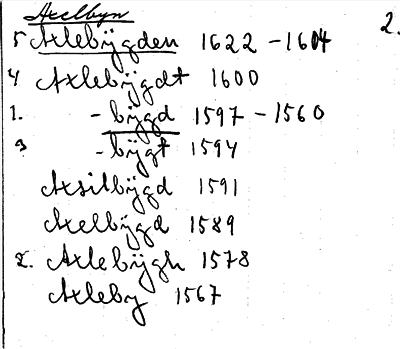 Axelbyn 2.
5 Axlebÿgden 1622 - 1604
4 Axlebÿgdt 1600
1. - bÿgd 1597 - 1560
3 - bÿgt 1594
Axsilbÿgd 1591
Axelbÿgd 1589
2. Axlebÿgh 1578
Axleby 1567